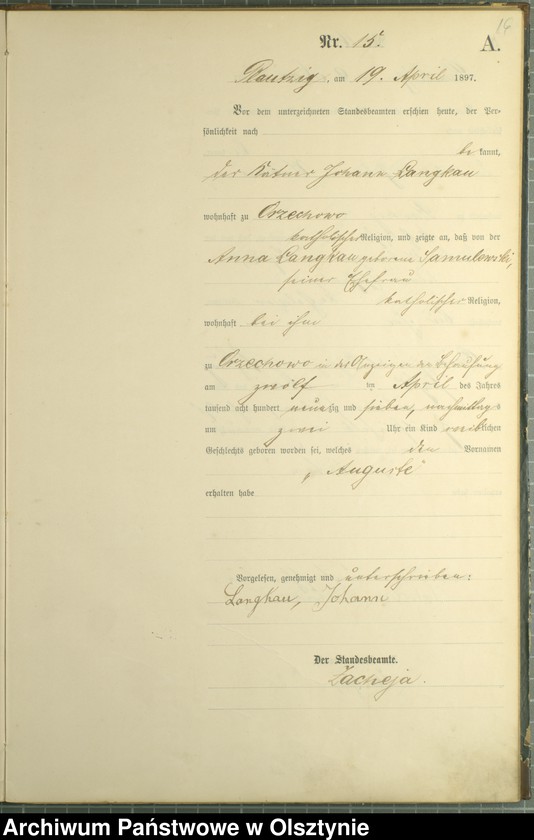 16
Nr. 15.
A.
Plautzig, am 19. April 1897.
Vor dem unterzeichneten Standesbeamten erschien heute, der Per-
sönlichkeit nach
be kannt,
der Kätner Johann Langkau
wohnhaft zu Orzechowo
katholischer Religion, und zeigte an, daß von der
Anna Langkau geborene Samulowski,
seiner Ehefrau
katholischer Religion,
wohnhaft bei ihm
zu Orzechowo in des Anzeigenden Behausung
am zwölf ten April des Jahres
tausend acht hundert neunzig und sieben, nachmittags
um zwei Uhr ein Kind weiblichen
Geschlechts geboren worden sei, welches den Vornamen
„Auguste"
erhalten habe
Vorgelesen, genehmigt und unterschrieben:
Langkau, Johann
Der Standesbeamte.
Zacheja.
Archiwum Państwowe w Olsztynie